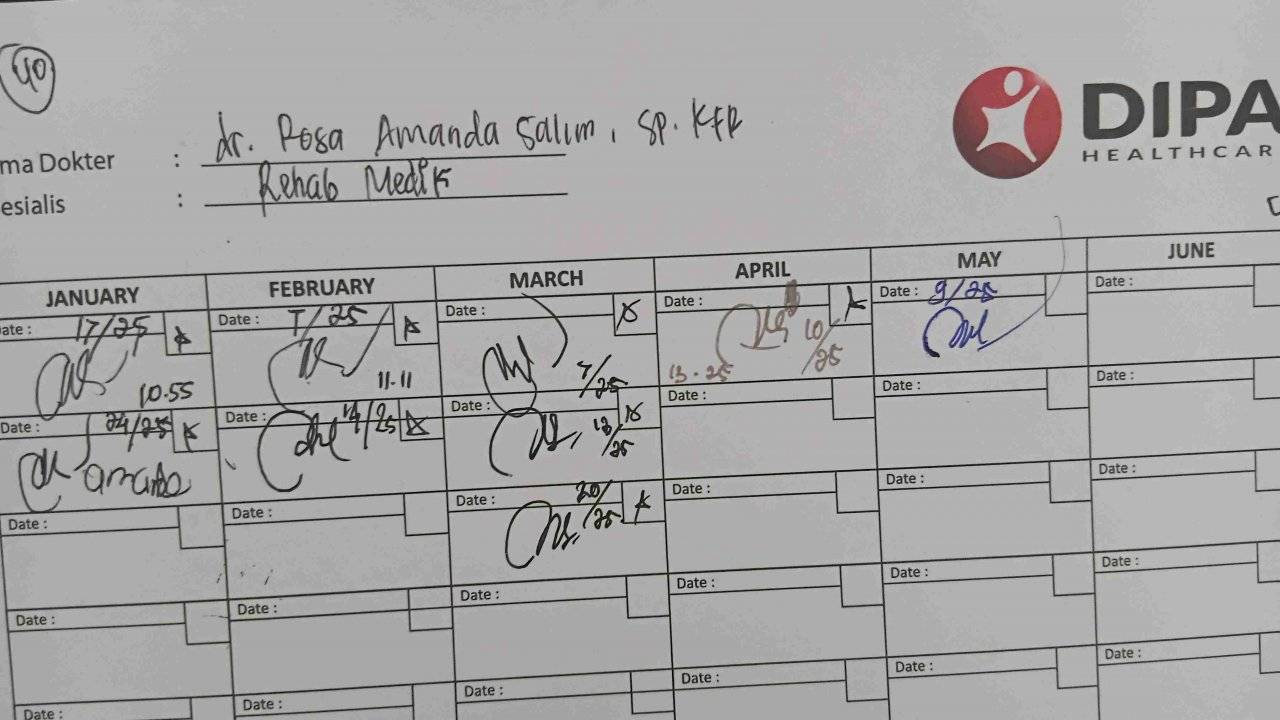 40
DIPA
HEALTHCAR
ma Dokter : dr. Rosa Amanda Salim, Sp. KFR
esialis : Rehab Medik
JANUARY FEBRUARY MARCH APRIL MAY JUNE
ate : 17/25 Date : 7/25 Date : Date : Date : 9/25 Date :
10.55 11.11 7/25 13-25 10/25
Date : 24/25 Date : 14/25 Date : 13/25 Date : Date : Date :
amanda
Date : Date : Date : 20/25 Date : Date : Date :
Date : Date : Date : Date : Date : Date :
Date : Date : Date : Date : Date : Date :